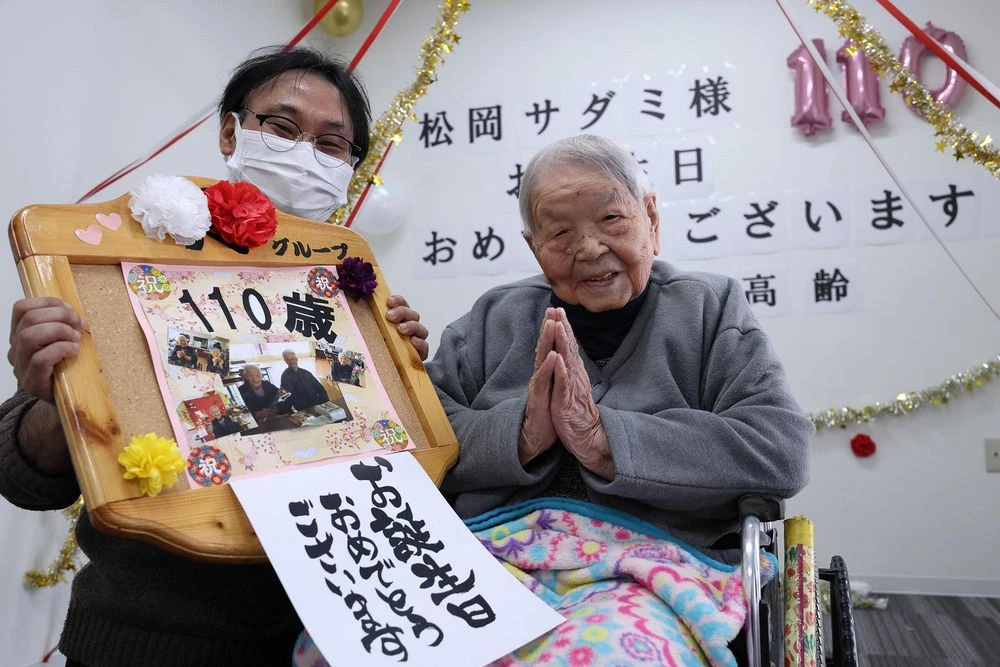 松岡サダミ様
110
お 生日
おめ ございます
高齢
グループ
祝
祝
110歳
祝
祝
お誕生日
おめでとう
ございます